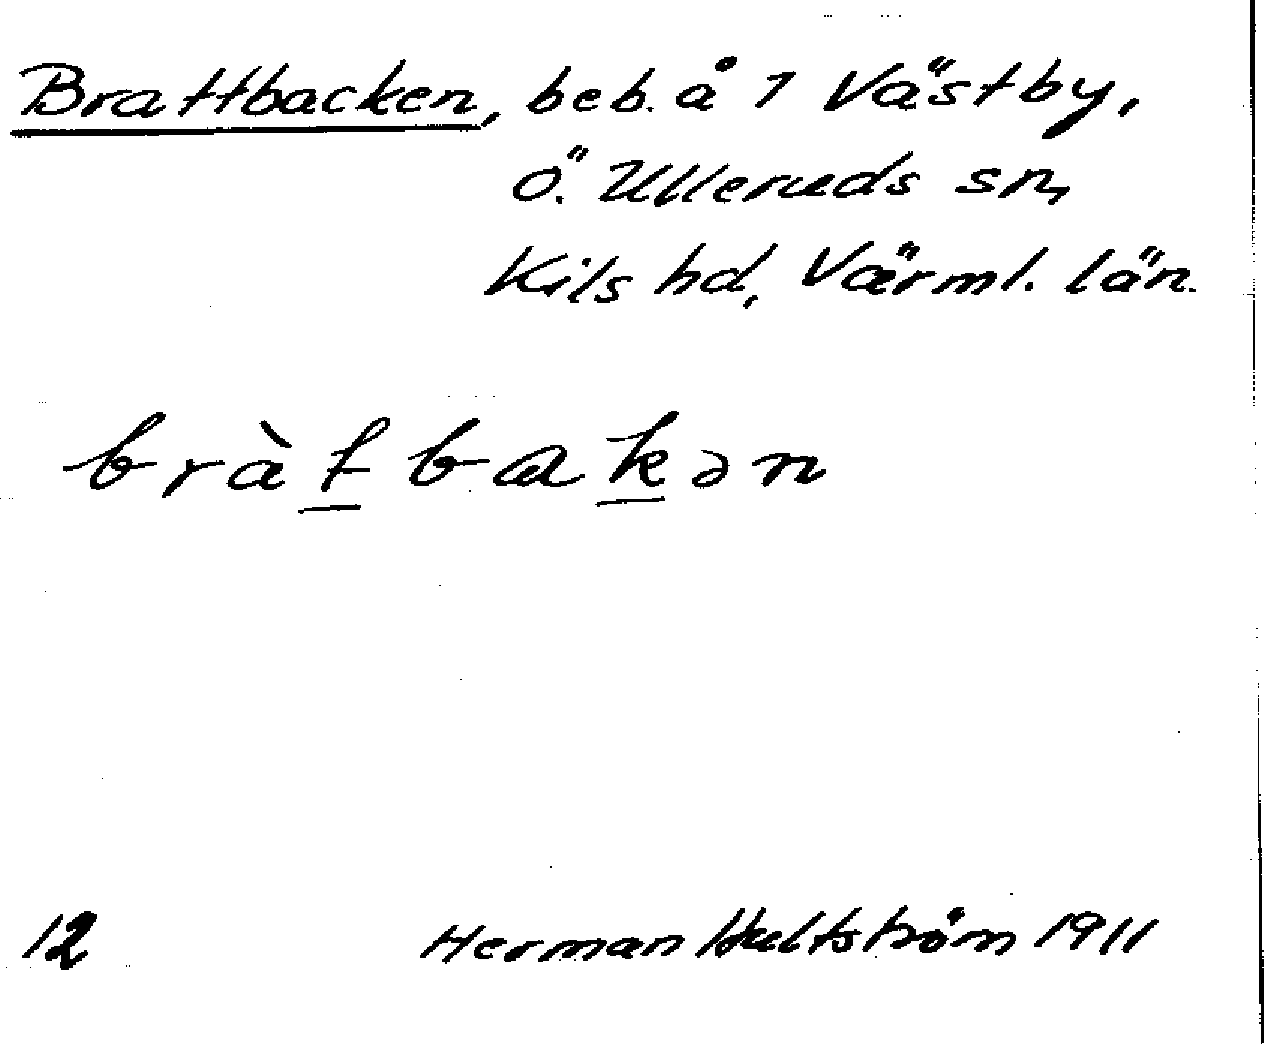 Brattbacken, beb. å 1 Västby,
Ö. Ulleruds sn,
Kils hd, Värml. län.
bràtbakən
12
Herman Hultström 1911